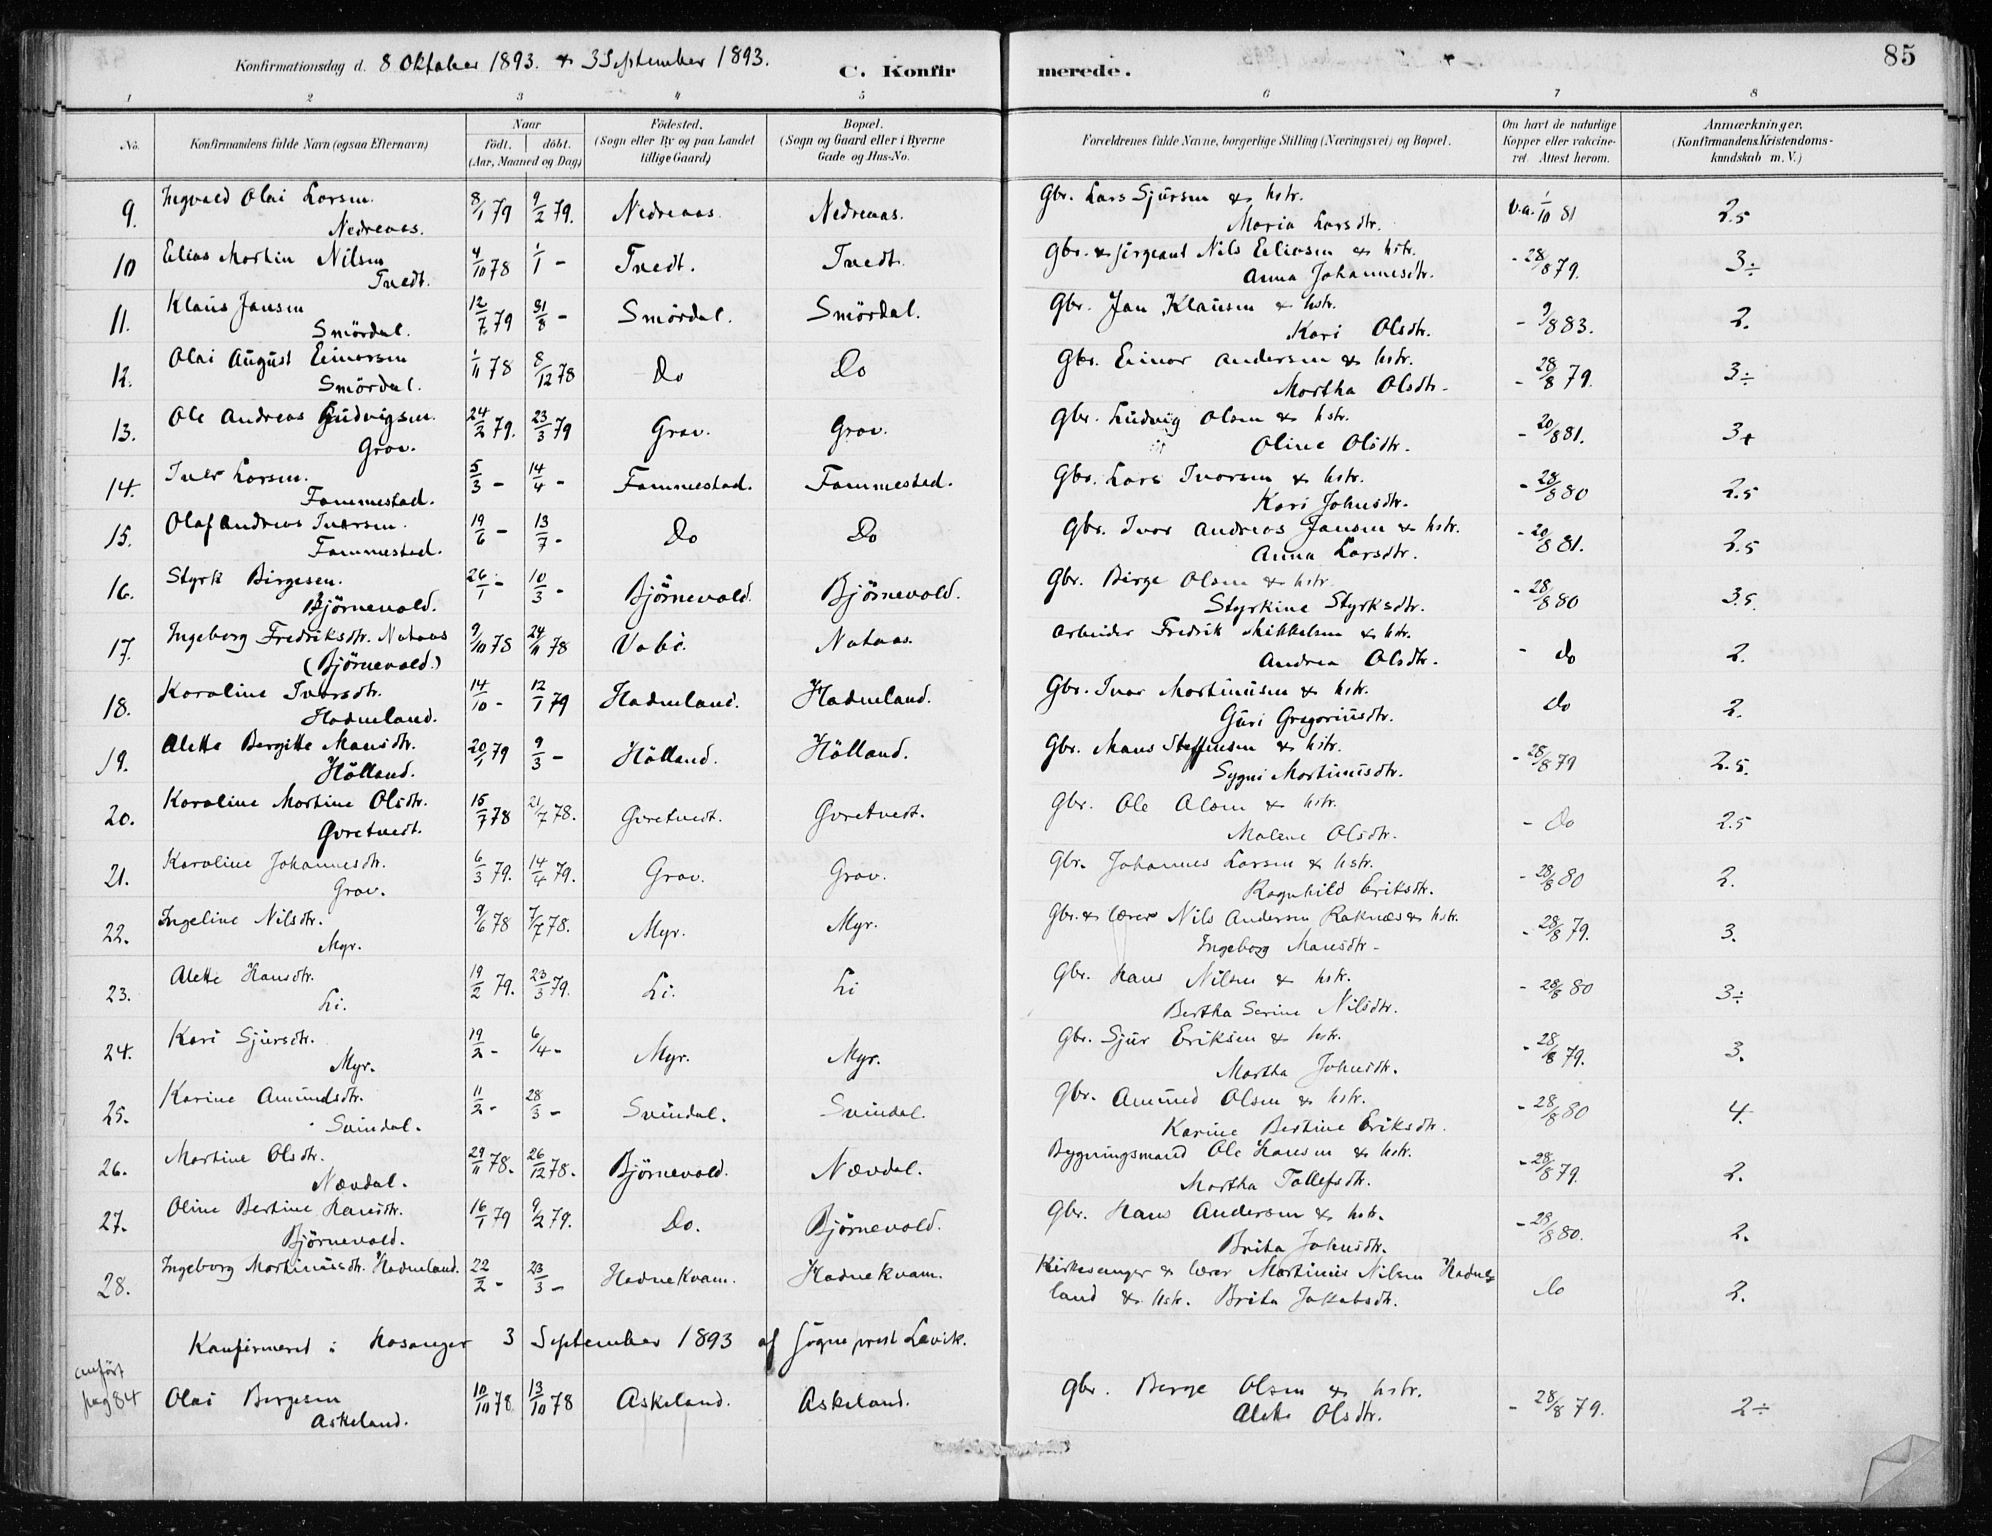 85
Konfirmationsdag d. 8 Oktober 1893. & 3 September 1893. C. Konfirmerede.
1 2 3 4 5 6 7 8
No. Konfirmandens fulde Navn (ogsaa Efternavn) Naar födt. döbt. (Aar, Maaned og Dag) Födested. (Sogn eller By og paa Landet tillige Gaard) Bopæl. (Sogn og Gaard eller i Byerne Gade og Hus-No. Forældrenes fulde Navne, borgerlige Stilling (Næringsvei) og Bopæl. Om havt de naturlige Kopper eller vakcineret. Attest herom. Anmærkninger. (Konfirmandens Kristendomskundskab m. V.)
9. Ingvald Olai Larsen. 8/1 79 9/2 79. Nedreaas. Nedreaas. Gbr. Lars Sjursen & hstr. v.a. 1/10 81 2.5
Nedreaas. Maria Larsdtr.
10 Elias Martin Nilsen 4/10 78 1/1 - Tvedt. Tvedt. Gbr. & sergeant Nils Eliasen & hstr. - 28/8 79. 3÷
Tvedt. Anna Johannesdtr.
11. Klaus Jansen 12/7 79 31/8 - Smördal. Smördal. Gbr. Jan Klausen & hstr. - 9/8 83. 2.
Smördal. Kari Olsdtr.
12. Olai August Einarsen 1/11 78 8/12 78 Do Do Gbr. Einar Andersen & hstr. - 28/8 79. 3÷
Smördal. Martha Olsdtr.
13. Ole Andreas Ludvigsen. 24/2 79. 23/3 79 Grav. Grav. Gbr. Ludvig Olsen & hstr. - 20/8 81. 3+
Grav. Oline Olsdtr.
14. Iver Larsen. 5/3 - 14/4 - Fammestad. Fammestad. Gbr. Lars Ivarsen & hstr. - 28/8 80 2.5
Fammestad. Kari Johnsdtr.
15. Olaf Andreas Ivarsen. 19/6 - 13/7 - Do Do Gbr. Ivar Andreas Jansen & hstr. - 20/8 81. 2.5
Fammestad. Anna Larsdtr.
16. Styrk Birgesen. 26/1 - 10/3 - Björnevold. Björnevold. Gbr. Birge Olsen & hstr. - 28/8 80 3.5.
Björnevold. Styrkine Styrksdtr.
17. Ingeborg Fredriksdtr. Nataas 9/10 78 24/11 78 Nataas. Arbeider Fredrik Mikkelsen & hstr. - do 2.
(Björnevold.) Andrea Olsdtr.
18. Karoline Ivarsdtr. 14/10 - 12/1 79 Hadneland. Hadneland. Gbr. Ivar Martinusen & hstr. do 2.
Hadneland. Guri Gregoriusdtr.
19. Alette Bergitte Mansdtr. 20/1 79 9/3 - Hölland. Hölland. Gbr. Mans Steffensen & hstr. - 28/8 79 2.5.
Hölland. Sygni Martinusdtr.
20. Karoline Martine Olsdtr. 15/7 78 21/7 78. Gvretvedt. Gvretvedt. Gbr. Ole Olsen & hstr. - Do 2.5
Gvretvedt. Malene Olsdtr.
21. Karoline Johannesdtr. 6/3 79. 14/4 79. Grav. Grav. Gbr. Johannes Larsen & hstr. - 28/8 80 2.
Grav. Ragnhild Eriksdtr.
22. Ingeline Nilsdtr. 9/6 78 7/7 78. Myr. Myr. Gbr. & lærer Nils Andersen Raknæs & hstr. - 28/8 79. 3.
Myr. Ingeborg Mansdtr.
23. Alette Hansdtr. 19/2 79. 23/3 79. Li. Li Gbr. Hans Nilsen & hstr. - 28/8 80 3÷
Li. Bertha Serine Nilsdtr.
24. Kari Sjursdtr. 19/2 - 6/4 - Myr. Myr. Gbr. Sjur Eriksen & hstr. - 28/8 79. 3.
Myr. Martha Johnsdtr.
25. Karine Amundsdtr. 11/2 - 28/3 - Svindal. Svindal. Gbr. Amund Olsen & hstr. - 28/8 80 4.
Svindal. Karine Bertine Eriksdtr.
26. Martine Olsdtr. 29/11 78. 26/12 78. Björnevold. Nævdal. Bygningsmand Ole Hansen & hstr. - 28/8 79. 2.
Nævdal. Martha Tollefsdtr.
27. Oline Bertine Hansdtr. 16/1 79 9/2 79. Do. Björnevold. Gbr. Hans Andersen & hstr. - 28/8 80. 2.
Björnevold. Brita Johnsdtr.
28. Ingeborg Martinusdtr. Hadneland. 22/2 - 23/3 - Hadnekvam. Hadnekvam. Kirkesanger & lærer Martinus Nilsen Hadne-
land & hstr. Brita Jakobsdtr. do 2.
Konfirmeret i Hosanger 3 September 1893 af sogneprest Lavik.
anfört
pag 84 Olai Bergesen 10/10 78 13/10 78 Askeland. Askeland. Gbr. Berge Olsen & hstr. - 28/8 79. 2÷
Askeland. Alette Olsdtr.